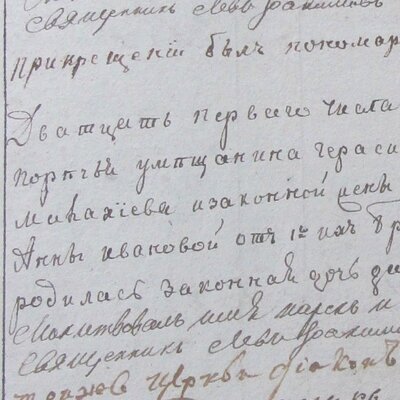 священникъ Левъ
Прикрещенїи былъ пономар
Дватцать первого числа
умещанина Гераси
михаиева изаконной жены
Анны ивановой отъ 1го ихъ бр
родилась законная дочь
Молитвовалъ имя нарекъ и
священникъ Левъ
тояже Церкви дїаконъ